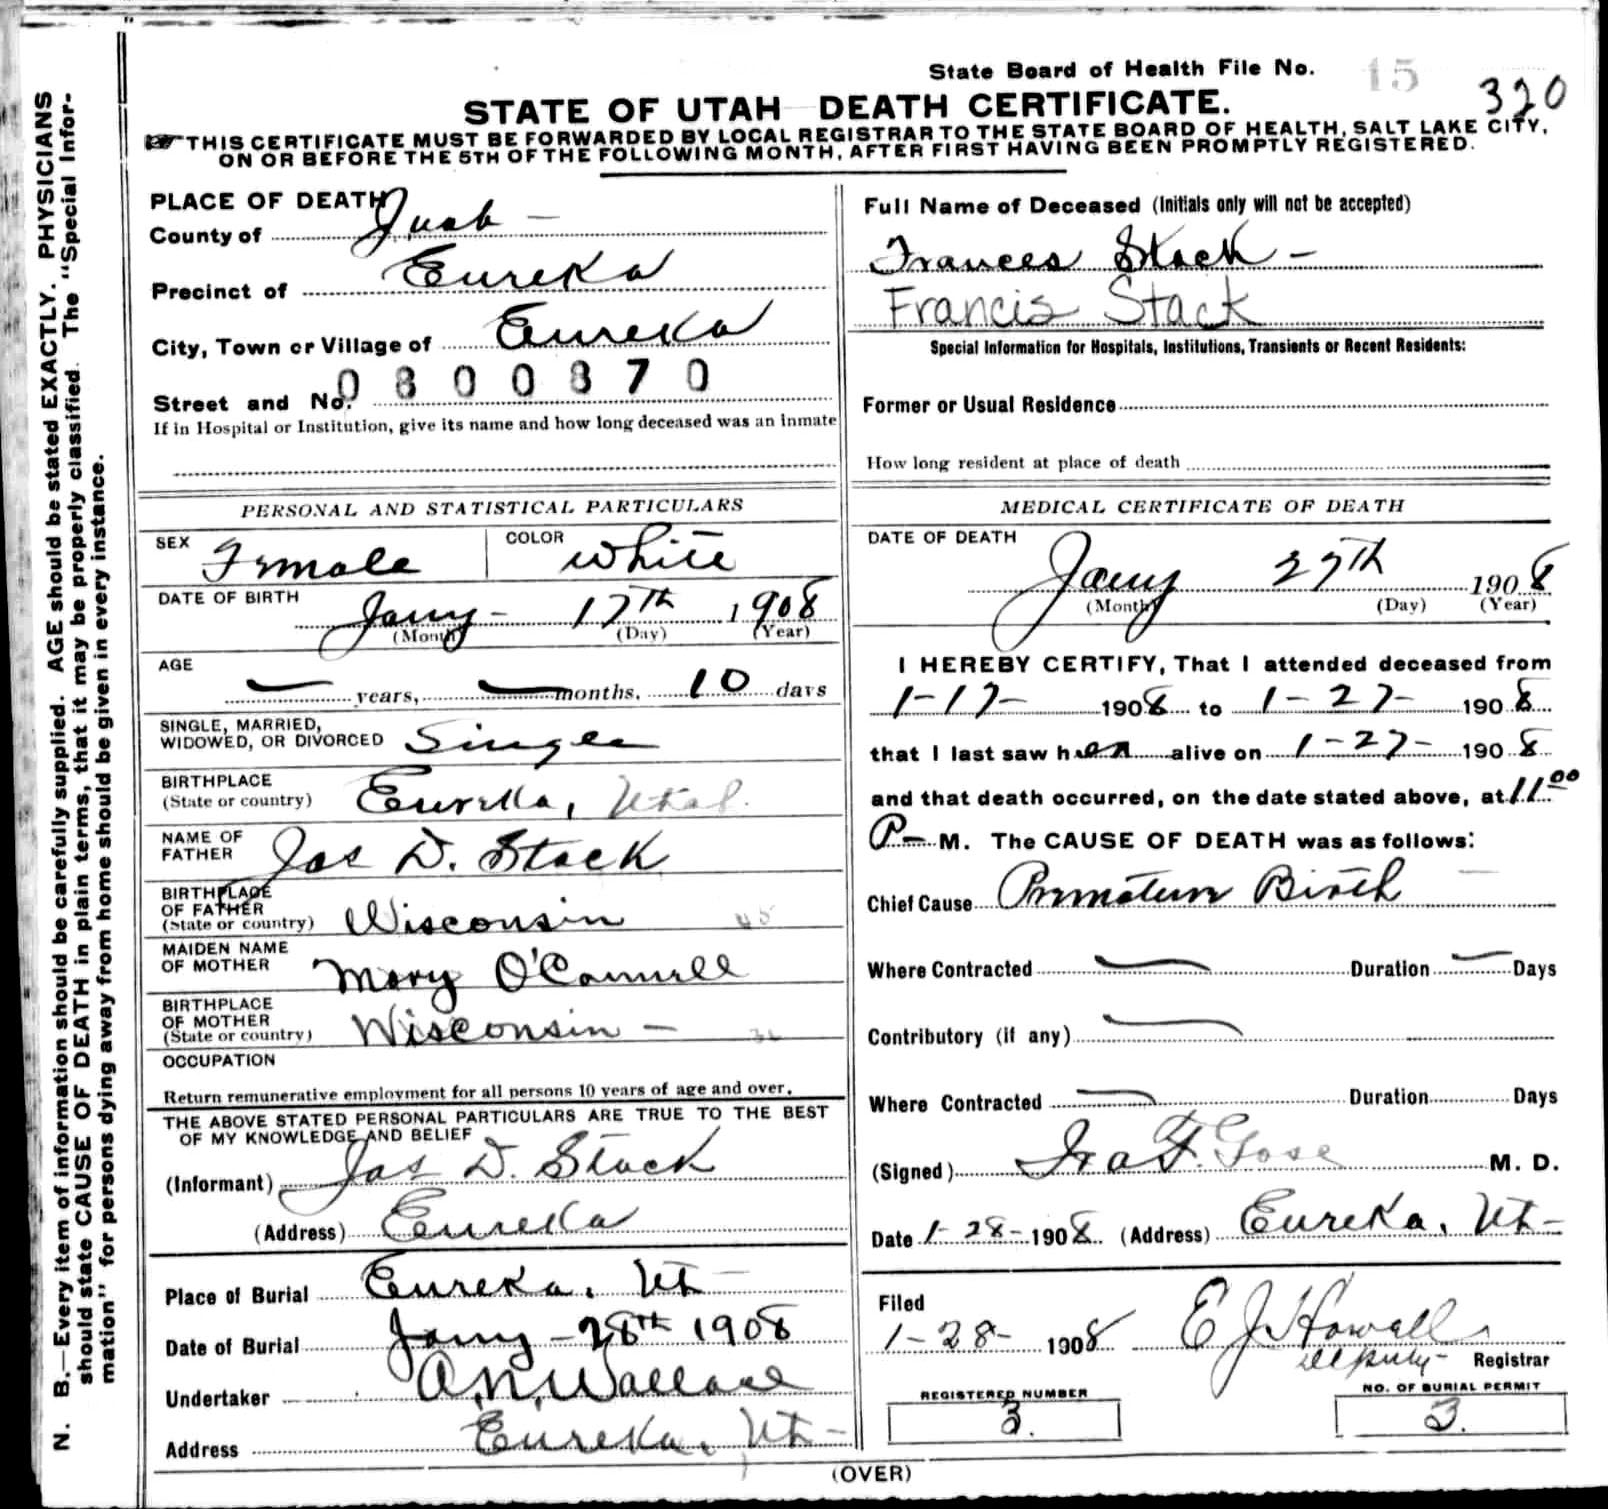 State Board of Health File No. 15
320
STATE OF UTAH DEATH CERTIFICATE.
THIS CERTIFICATE MUST BE FORWARDED BY LOCAL REGISTRAR TO THE STATE BOARD OF HEALTH, SALT LAKE CITY,
ON OR BEFORE THE 5TH OF THE FOLLOWING MONTH, AFTER FIRST HAVING BEEN PROMPTLY REGISTERED.
N. B.—Every item of information should be carefully supplied. AGE should be stated EXACTLY. PHYSICIANS
should state CAUSE OF DEATH in plain terms, that it may be properly classified. The "Special Infor-
mation" for persons dying away from home should be given in every instance.
PLACE OF DEATH
County of Juab -
Precinct of Eureka
City, Town or Village of Eureka
Street and No. 0300370
If in Hospital or Institution, give its name and how long deceased was an inmate
PERSONAL AND STATISTICAL PARTICULARS
SEX Female COLOR White
DATE OF BIRTH Jany - 17th 1908
(Month) (Day) (Year)
AGE
— years, — months, 10 days
SINGLE, MARRIED,
WIDOWED, OR DIVORCED Single
BIRTHPLACE
(State or country) Eureka, Utah.
NAME OF
FATHER Jas D. Stack
BIRTHPLACE
OF FATHER
(State or country) Wisconsin 45
MAIDEN NAME
OF MOTHER Mary O'Connell
BIRTHPLACE
OF MOTHER
(State or country) Wisconsin -
OCCUPATION
Return remunerative employment for all persons 10 years of age and over.
THE ABOVE STATED PERSONAL PARTICULARS ARE TRUE TO THE BEST
OF MY KNOWLEDGE AND BELIEF
(Informant) Jas D. Stack
(Address) Eureka
Place of Burial Eureka, Ut -
Date of Burial Jany - 28th 1908
Undertaker A.N. Wallace
Address Eureka, Ut -
Full Name of Deceased (Initials only will not be accepted)
Frances Stack -
Francis Stack
Special Information for Hospitals, Institutions, Transients or Recent Residents:
Former or Usual Residence
How long resident at place of death
MEDICAL CERTIFICATE OF DEATH
DATE OF DEATH
Jany 27th 1908
(Month) (Day) (Year)
I HEREBY CERTIFY, That I attended deceased from
1-17- 1908 to 1-27- 1908
that I last saw her alive on 1-27- 1908
and that death occurred, on the date stated above, at 11.00
P- M. The CAUSE OF DEATH was as follows:
Chief Cause Premature Birth -
Where Contracted — Duration — Days
Contributory (if any) —
Where Contracted — Duration Days
(Signed) Ira F. Gose M. D.
Date 1-28-1908 (Address) Eureka, Ut -
Filed
1-28- 1908 E J Howell
Deputy - Registrar
REGISTERED NUMBER
3.
NO. OF BURIAL PERMIT
3.
(OVER)